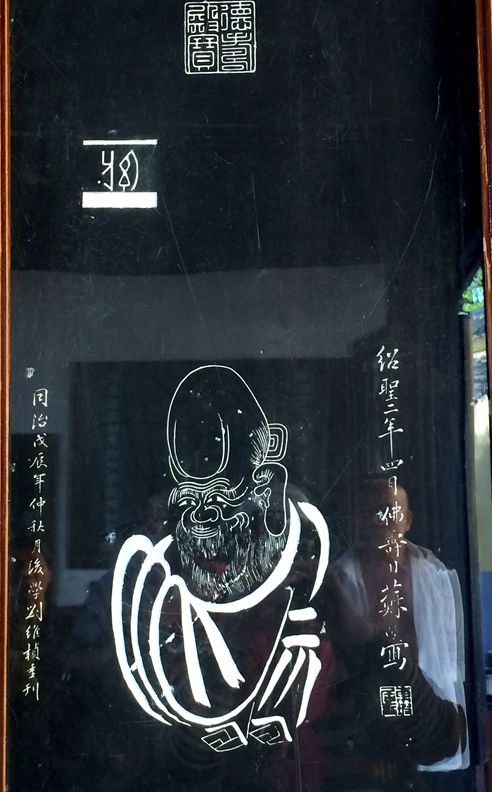 德壽殿寶
紹聖二年四月佛壽日蘇寫
同治戊辰年仲秋月後學劉維楨重刊